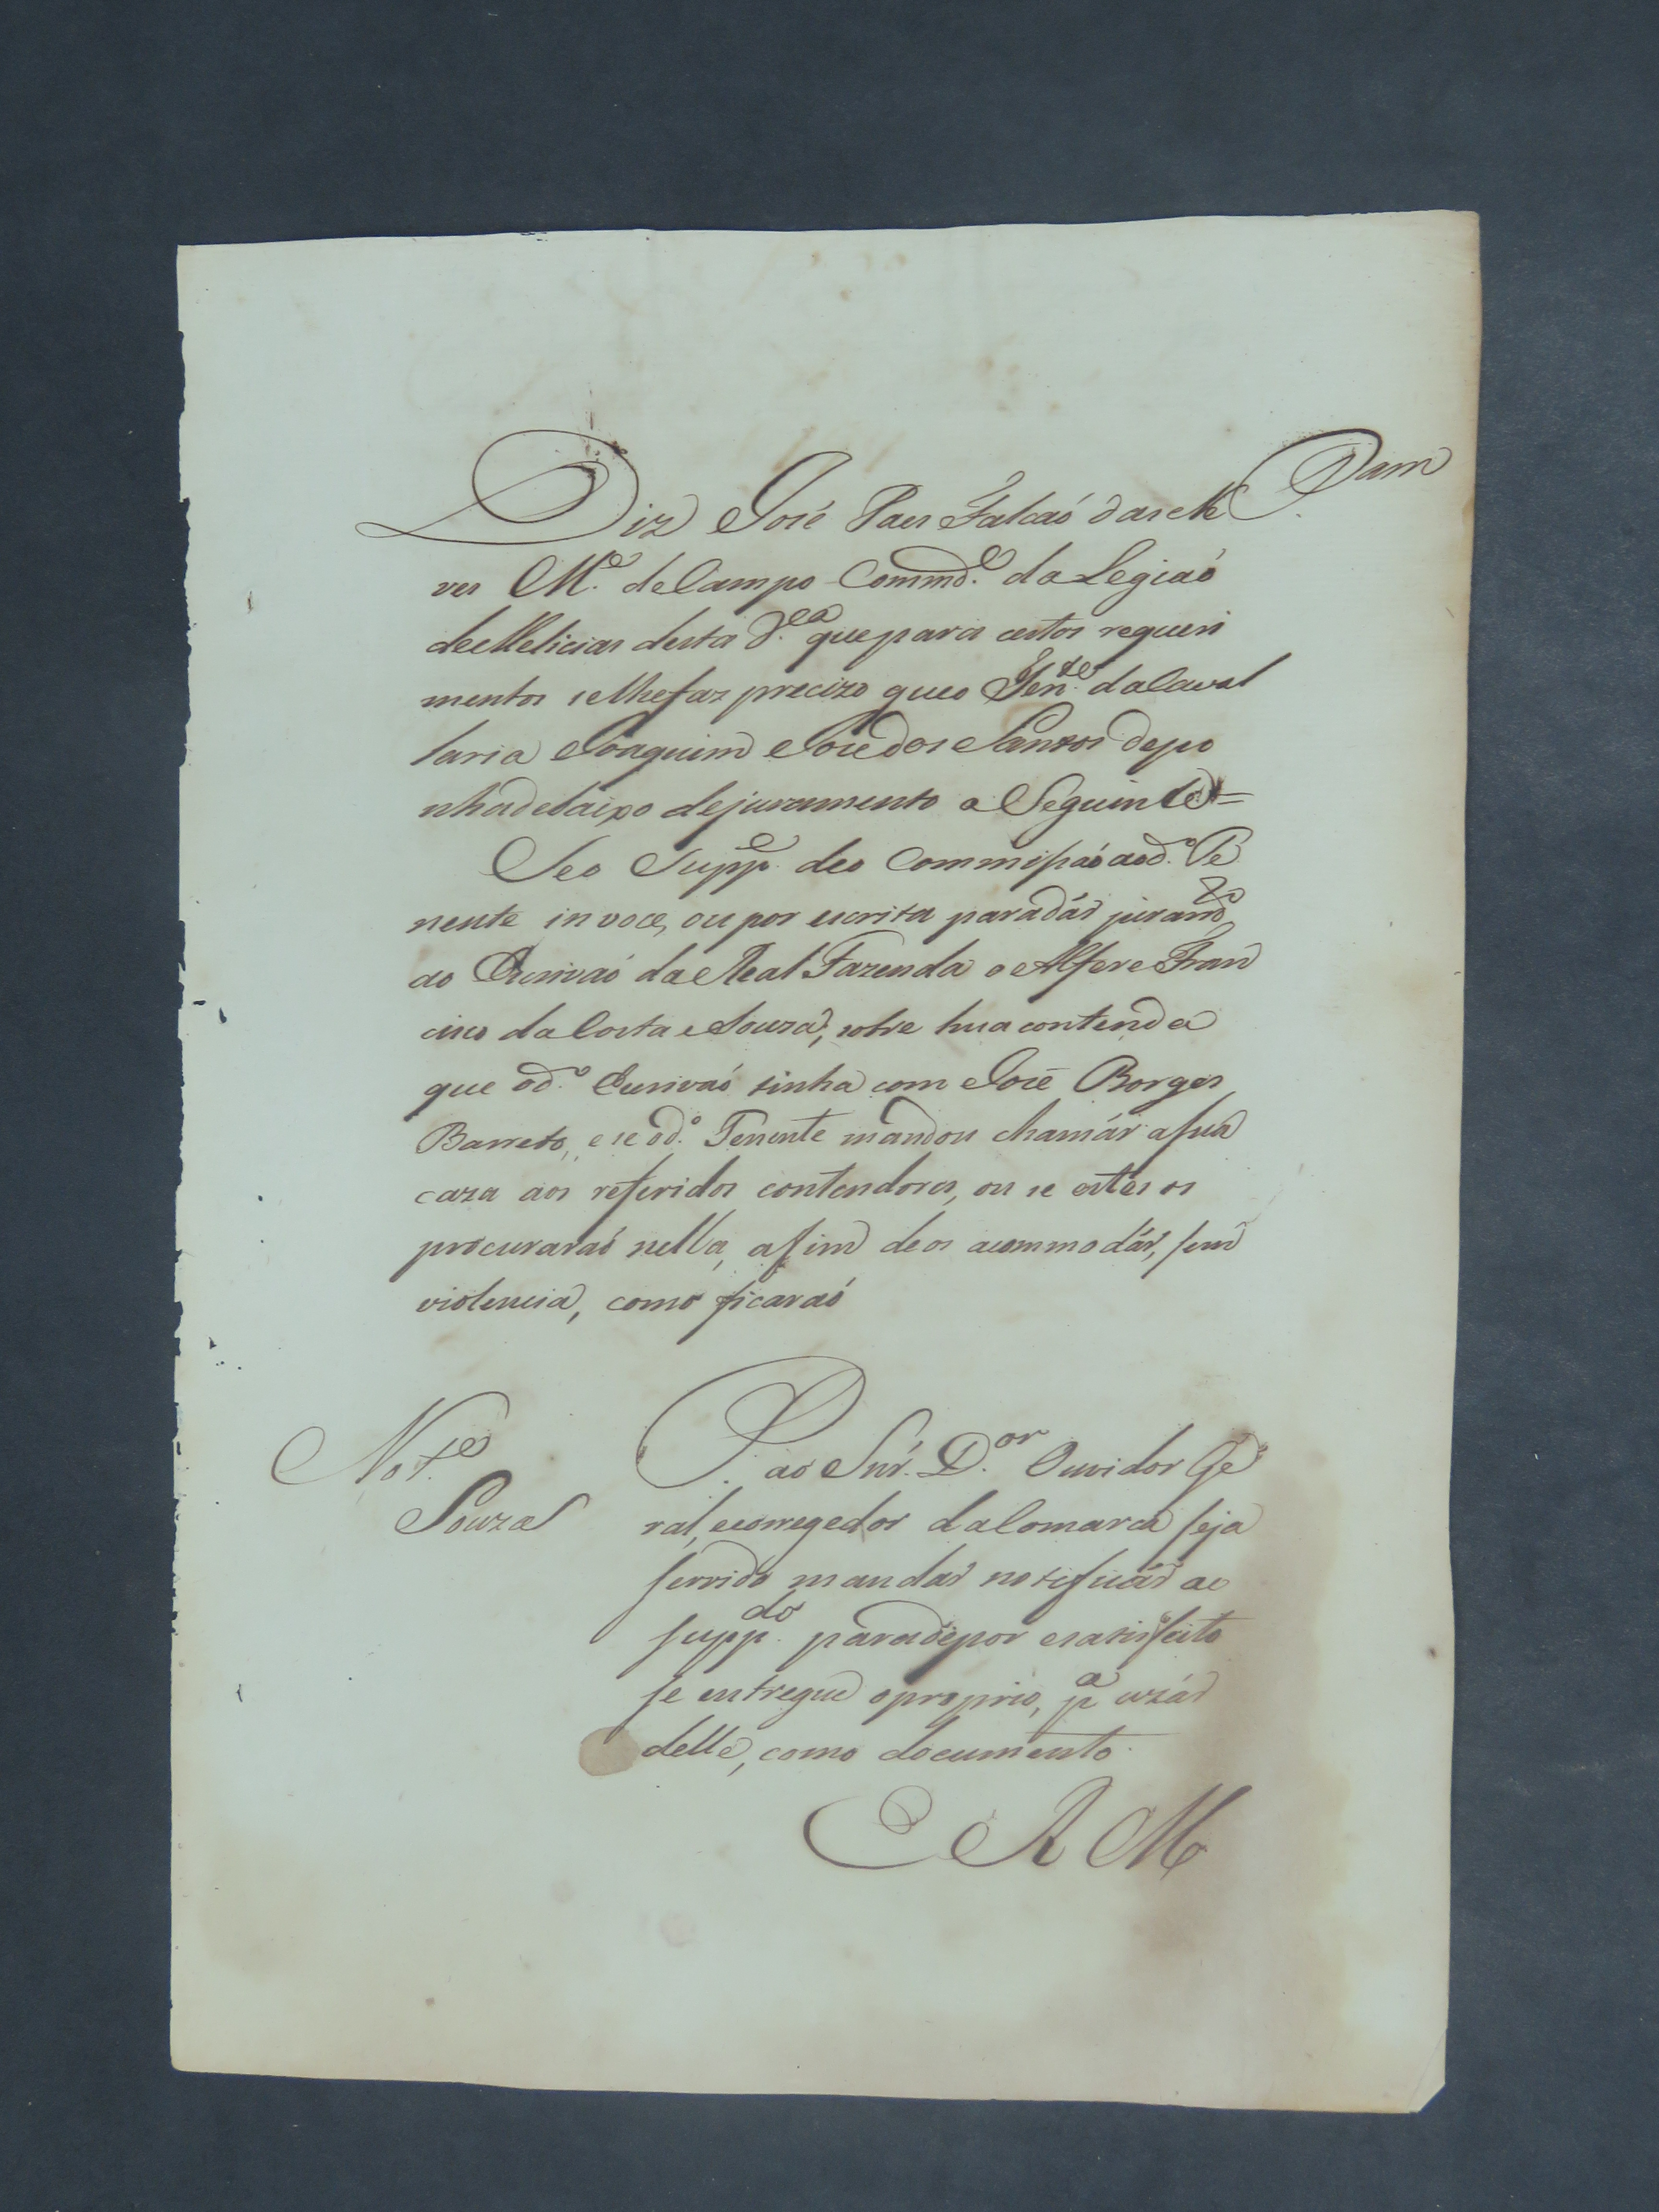 Diz José Paes Falcaó das Ne
ves M.e de Campo Comm.de da Legiaó
de Melicias desta V.ea que para certos requeri
mentos se lhe faz precizo que o Ten.te da Caval
laria Joaquim Jose dos Santos depo
nha debaixo de juramento o Seguinte =
Se o Supp.e deo Commissaó ao d.o Te
nente in voce, ou por escrita para dár juram.to
ao Escrivaó da Real Fazenda o Alfere Fran
cisco da Costa e Souza, sobre hua contenda
que o d.o Escrivaó tinha com José Borges
Barreto, e se o d.o Tenente mandou chamár a sua
caza aos referidos contendores, ou se estes os
procuraraó nella, a fim de os acommodár, sem
violencia, como ficaraó
P. ao Snr. D.or Ouvidor Ge
ral, e corregedor da Comarca seja
servido mandar notificár ao
supp.do para depor e satisfeito
se entregue o proprio, p.a uzár
delle, como documento.
E R M
Not.e
Souza